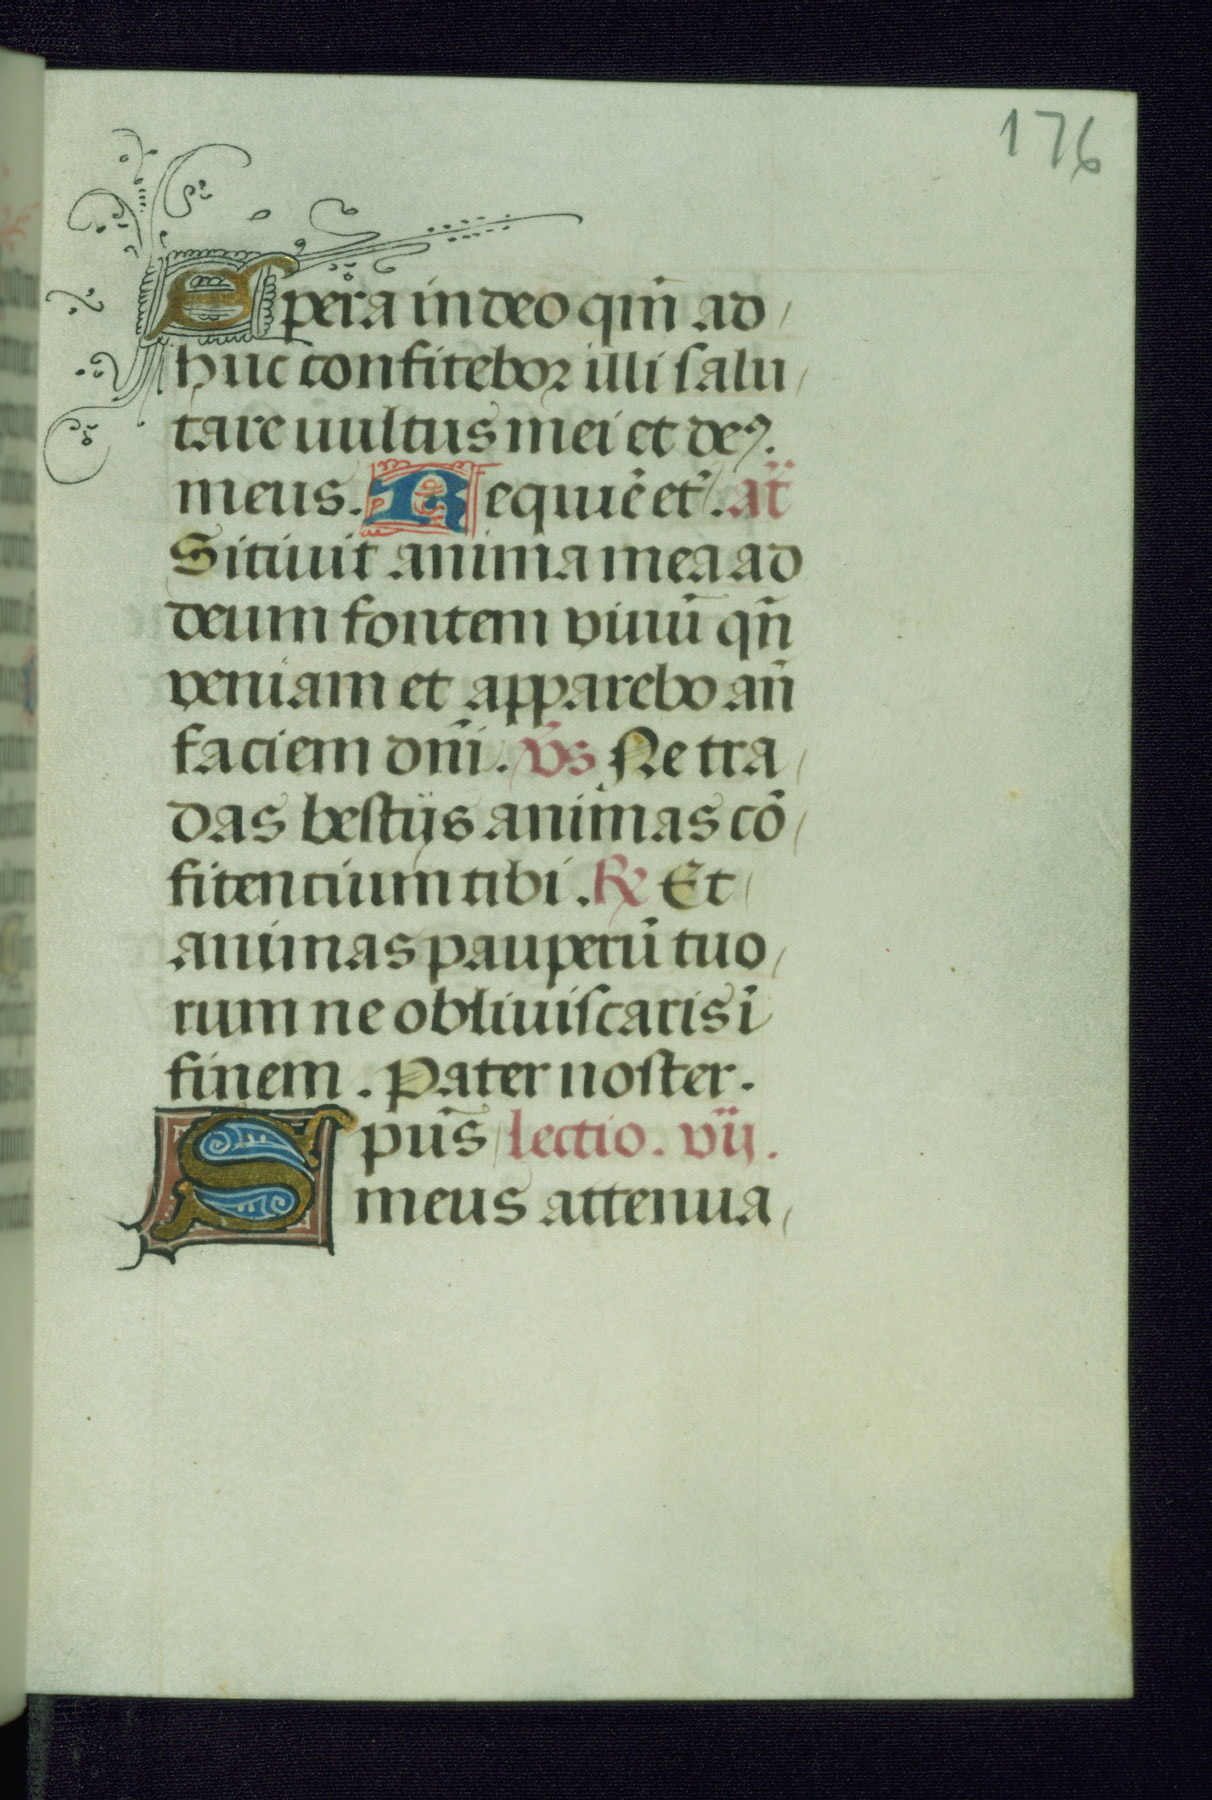 176
Spera in deo qm̄ ad
huc confitebor illi salu
tare uultus mei et deꝰ
meus. Requiē et̄. at̄
Sitiuit anima mea ad
deum fontem viuū qn̄
veniam et apparebo an̄
faciem dn̄i. v̄s Ne tra
das bestiis animas cō
fitentium tibi. ℟ Et
animas pauperū tuo
rum ne obliuiscaris ī
finem. Pater noster.
Spūs lectio. vii.
meus attenua